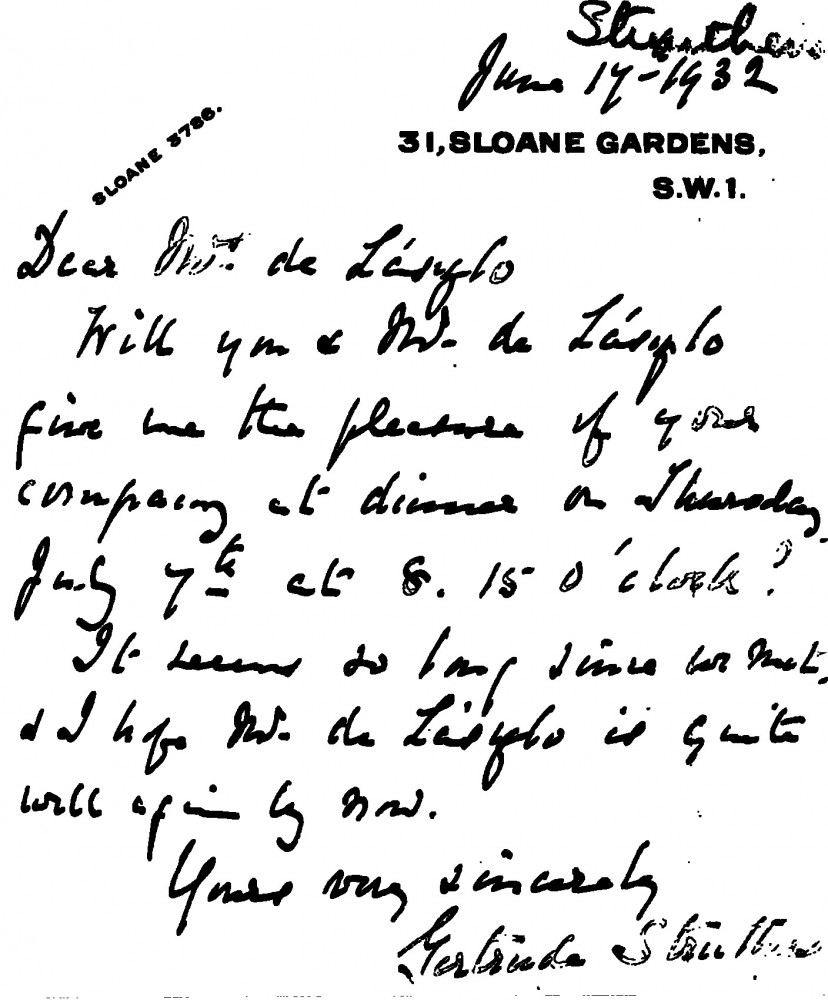 Struthers
June 17-1932
SLOANE 3786.
31, SLOANE GARDENS,
S.W.1.
Dear Mrs. de László
Will you & Mr. de László
give me the pleasure of your
company at dinner on Thursday
July 7th at 8.15 o'clock?
It seems so long since we met,
& I hope Mr. de László is quite
well again by now.
Yours very sincerely
Gertrude Struthers